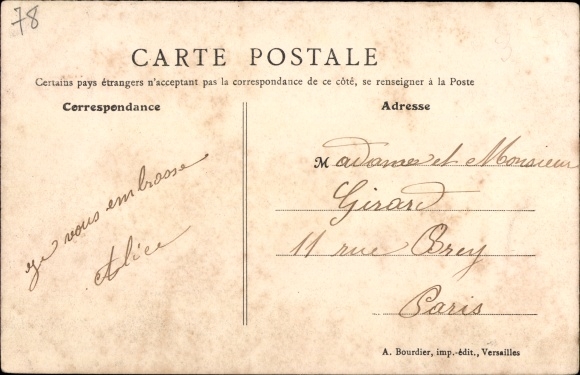 78
CARTE POSTALE
Certains pays étrangers n'acceptant pas la correspondance de ce côté, se renseigner à la Poste
Correspondance
je vous embrasse
Alice
Adresse
Madame et Monsieur
Girard
11 rue Brey
Paris
A. Bourdier, imp.-édit., Versailles